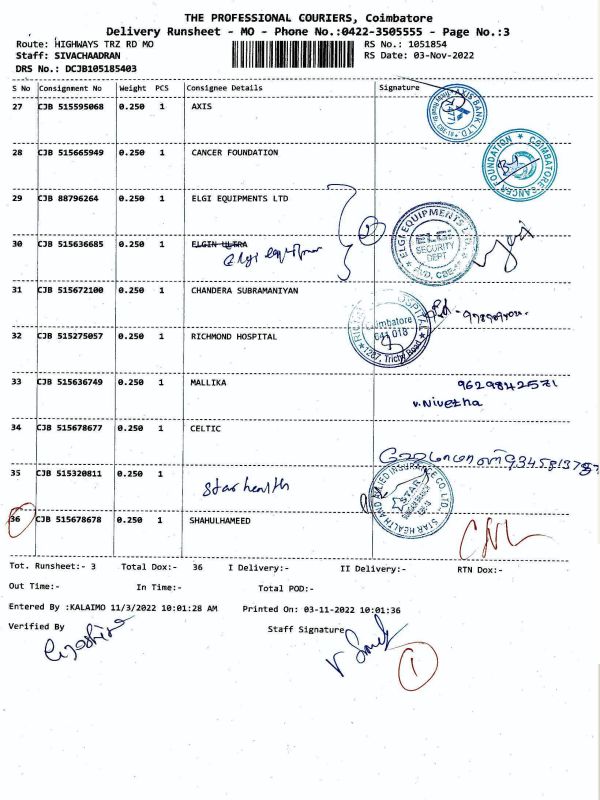 THE PROFESSIONAL COURIERS, Coimbatore
Delivery Runsheet - MO - Phone No.:0422-3505555 - Page No.:3
Route: HIGHWAYS TRZ RD MO RS No.: 1051854
Staff: SIVACHAADRAN RS Date: 03-Nov-2022
DRS No.: DCJB105185403
S No Consignment No Weight PCS Consignee Details Signature
27 CJB 515595068 0.250 1 AXIS
AXIS BANK LTD
28 CJB 515665949 0.250 1 CANCER FOUNDATION
COIMBATORE CANCER FOUNDATION
29 CJB 88796264 0.250 1 ELGI EQUIPMENTS LTD
ELGI EQUIPMENTS LTD.
ELGI
SECURITY
DEPT
30 CJB 515636685 0.250 1 ELGIN ULTRA
31 CJB 515672100 0.250 1 CHANDERA SUBRAMANIYAN
32 CJB 515275057 0.250 1 RICHMOND HOSPITAL
Coimbatore
641 018
1287, Trichy Road
33 CJB 515636749 0.250 1 MALLIKA
9629842571
v.Nivetha
34 CJB 515678677 0.250 1 CELTIC
35 CJB 515320811 0.250 1
Star health
STAR HEALTH AND ALLIED INSURANCE CO. LTD.
STAR
36 CJB 515678678 0.250 1 SHAHULHAMEED
CNL
Tot. Runsheet:- 3 Total Dox:- 36 I Delivery:- II Delivery:- RTN Dox:-
Out Time:- In Time:- Total POD:-
Entered By :KALAIMO 11/3/2022 10:01:28 AM Printed On: 03-11-2022 10:01:36
Verified By Staff Signature
1